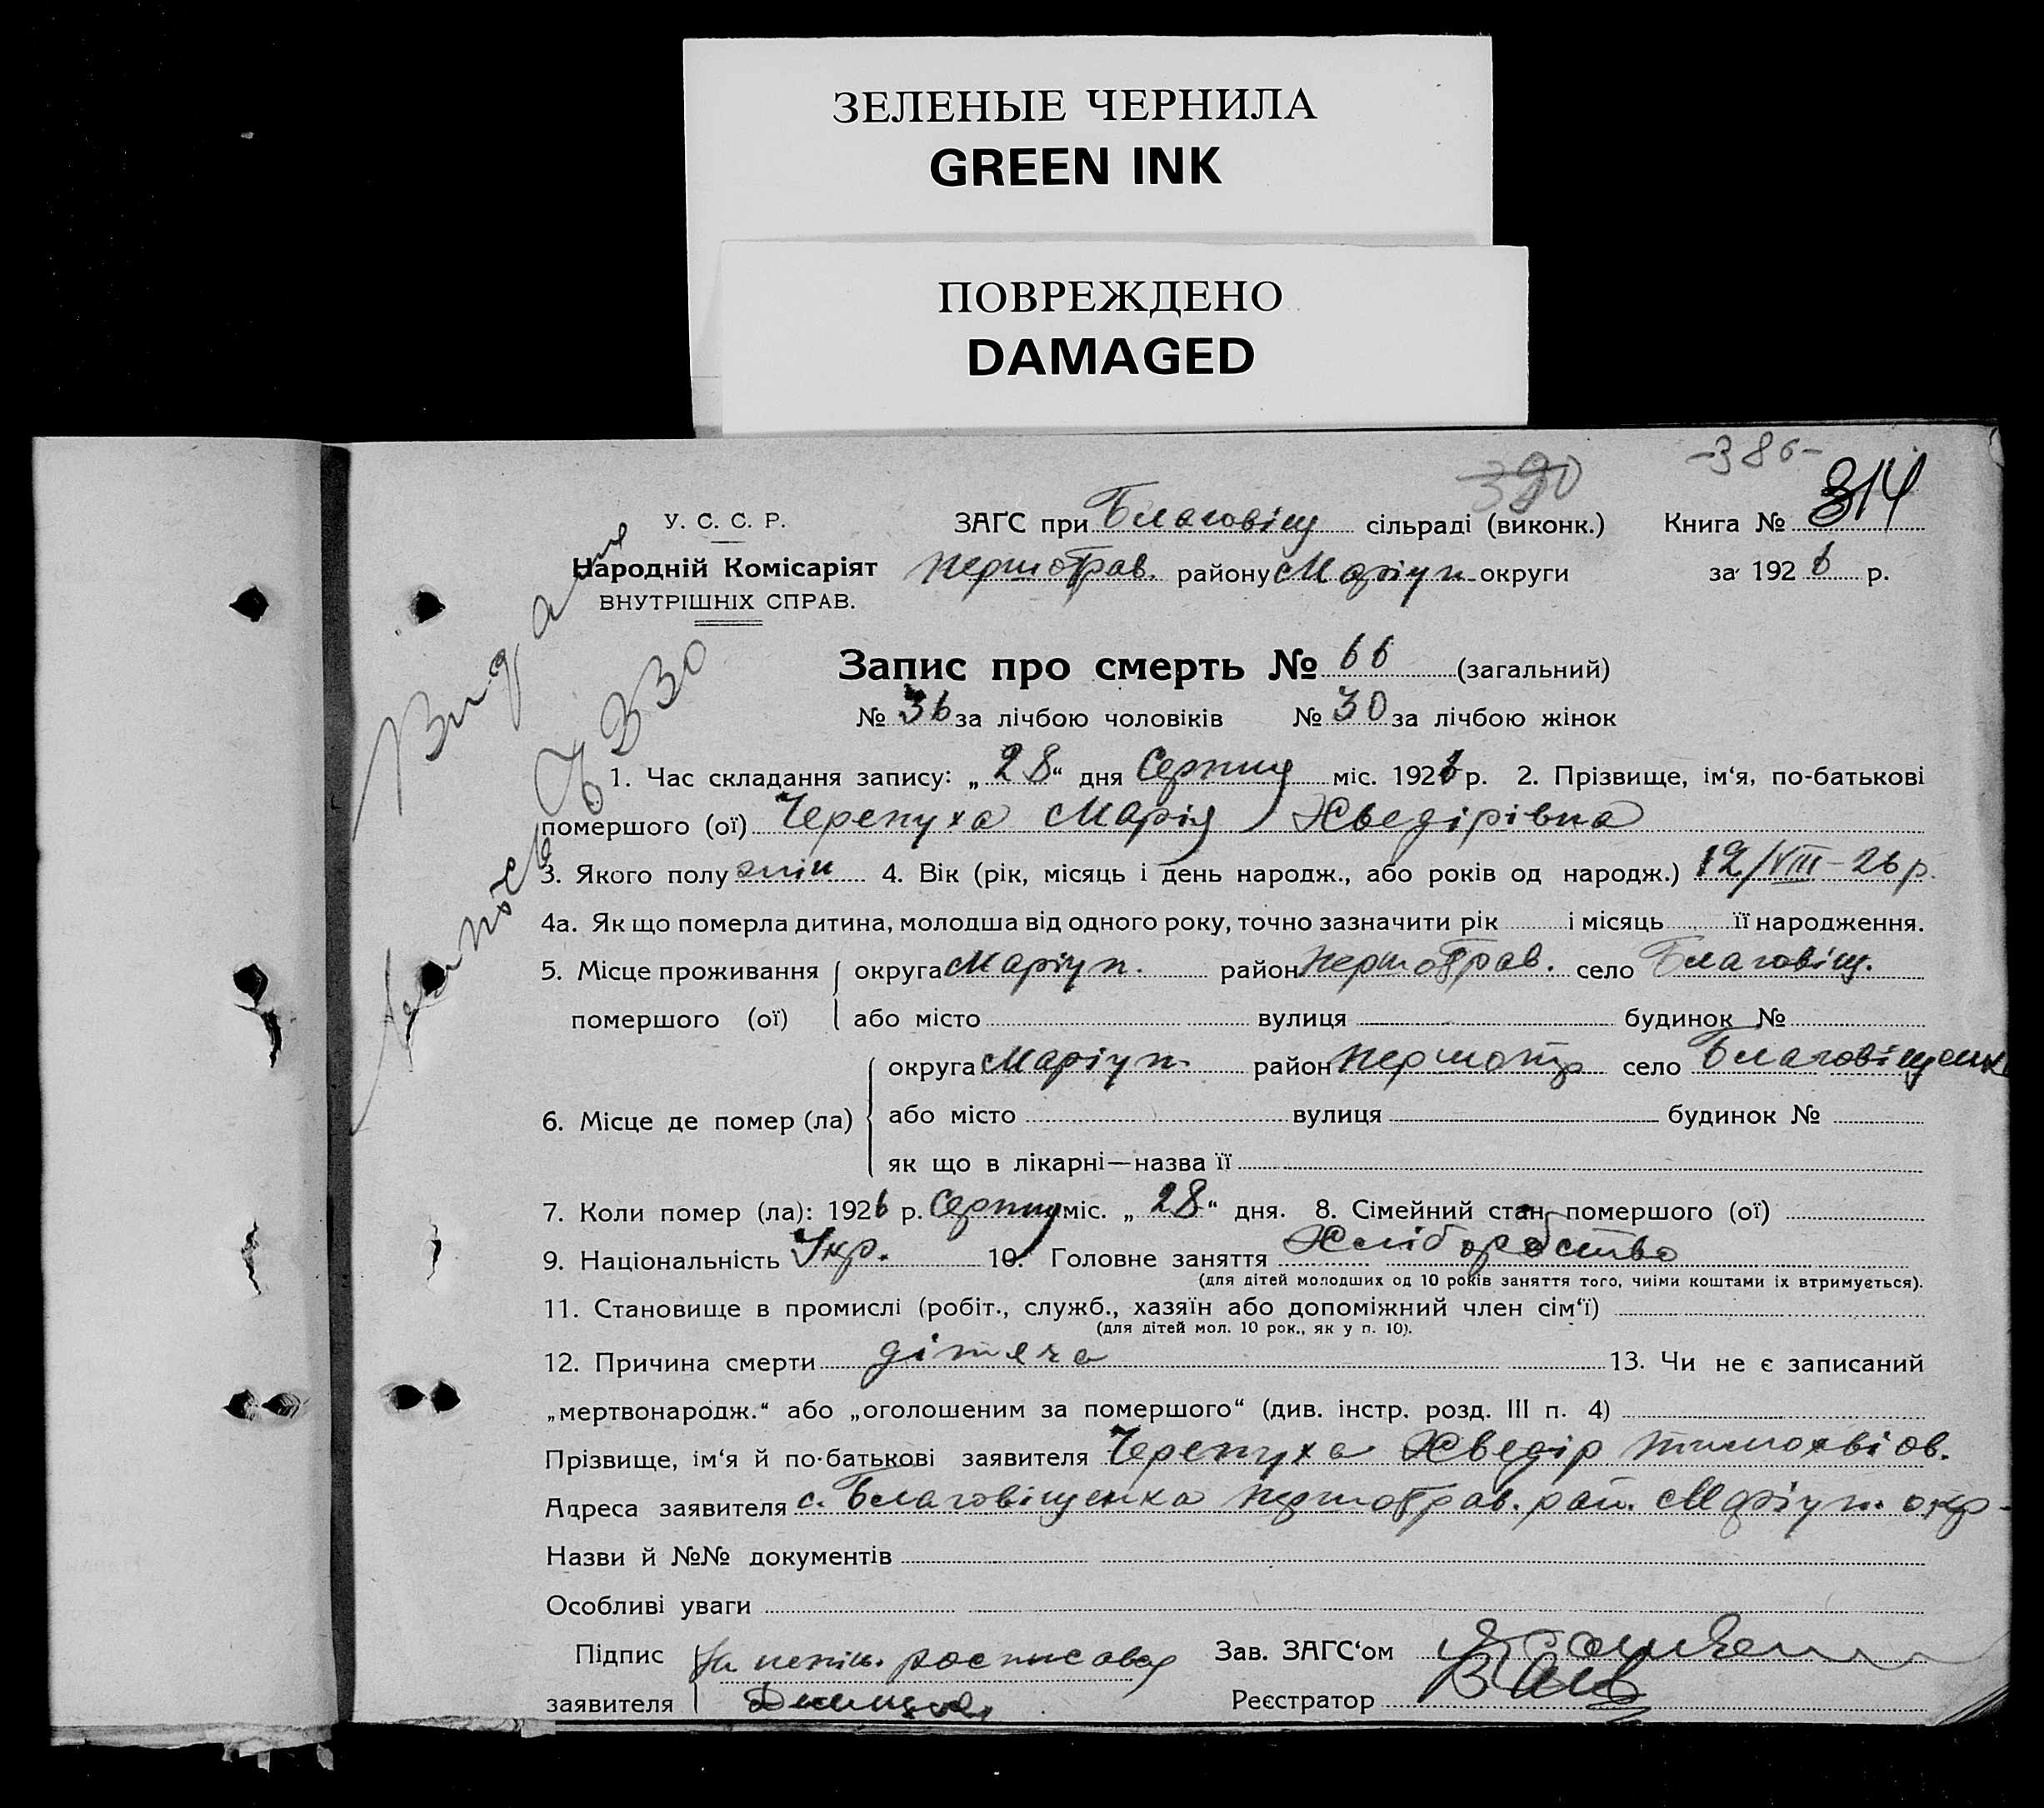 ЗЕЛЕНЫЕ ЧЕРНИЛА
GREEN INK
ПОВРЕЖДЕНО
DAMAGED
-386-
390
У. С. С. Р. ЗАГС при Благовіщ сільраді (виконк.) Книга № 314
Народній Комісаріят Першотрав. району Маріуп. округи за 1926 р.
ВНУТРІШНІХ СПРАВ.
Запис про смерть № 66 (загальний)
№ 36 за лічбою чоловіків № 30 за лічбою жінок
1. Час складання запису: „28“ дня Серпня міс. 1926 р. 2. Прізвище, ім‘я, по-батькові
помершого (ої) Черепуха Марія Хведірівна
3. Якого полу жін 4. Вік (рік, місяць і день народж., або років од народж.) 12/VIII-26 р.
4а. Як що померла дитина, молодша від одного року, точно зазначити рік і місяць її народження.
5. Місце проживання округа Маріуп. район Першотрав. село Благовіщ.
помершого (ої) або місто вулиця будинок №
округа Маріуп. район Першотр село Благовіщенк
6. Місце де помер (ла) або місто вулиця будинок №
як що в лікарні—назва її
7. Коли помер (ла): 1926 р. Серпня міс. „28“ дня. 8. Сімейний стан помершого (ої)
9. Національність Укр. 10. Головне заняття Хліборобство
(для дітей молодших од 10 років заняття того, чиїми коштами їх втримується).
11. Становище в промислі (робіт., служб., хазяїн або допоміжний член сім‘ї)
(для дітей мол. 10 рок., як у п. 10).
12. Причина смерти дітяча 13. Чи не є записаний
„мертвонародж.“ або „оголошеним за помершого“ (див. інстр. розд. III п. 4)
Прізвище, ім‘я й по-батькові заявителя Черепуха Хведір Тимохвіов.
Адреса заявителя с. Благовіщенка Першотрав. рай. Маріуп. окр.
Назви й №№ документів
Особливі уваги
Підпис За непис. росписався Зав. ЗАГС‘ом
заявителя Реєстратор